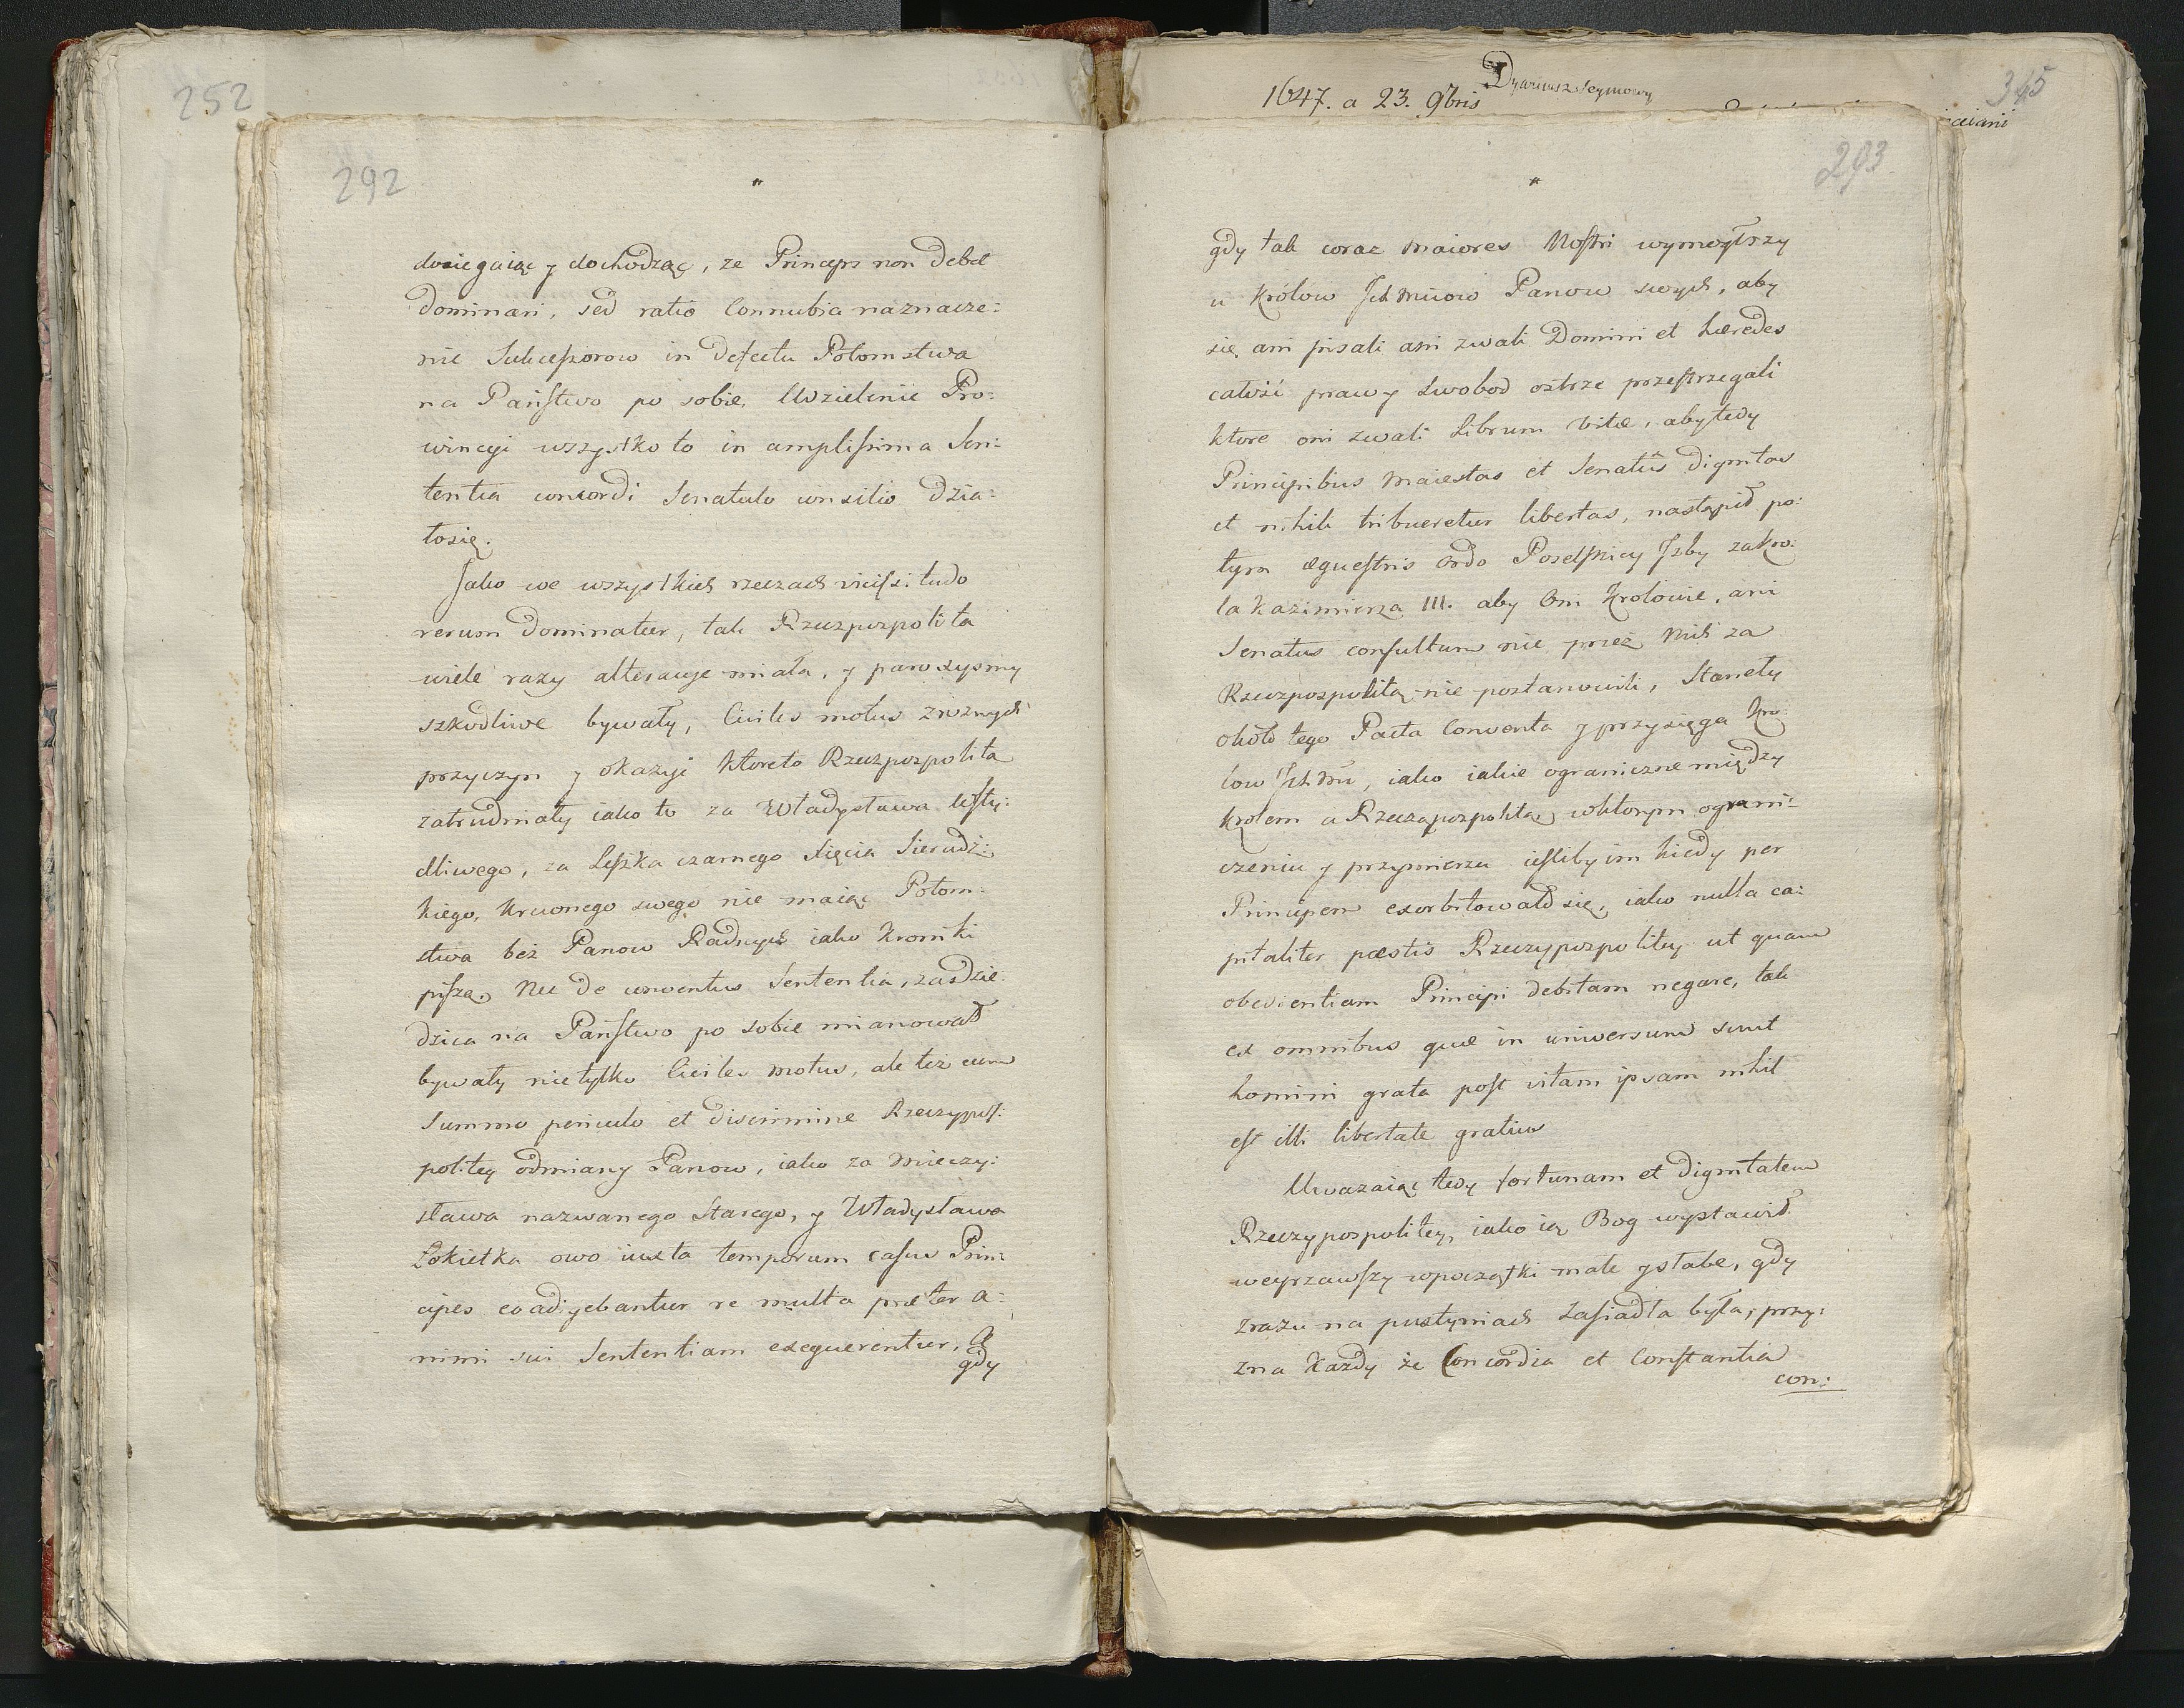 252
292
dosiegaiąc y dochodząc, ze Princeps non debet
dominari, sed ratio Connubia naznacze:
nie Sukcessorow in defectu Potomstwa
na Państwo po sobie, Udzielenie Pro:
wincyi wszystko to in amplissima Sen:
tentia concordi Senatulo consilio dzia:
łosię.
Jako we wszystkich rzeczach vicissitudo
rerum dominatur, tak Rzeczpospolita
wiele razy alteracye miała, y paroxysmy
szkodliwe bywały, Civiles motus zroznych
przyczyn y okazyi ktoreto Rzeczpospolita
zatrudniały iako to za Władysława
dliwego, za Leszka czarnego Xięcia Sieradz:
kiego, Krewnego swego nie maiąc Potom:
stwa bez Panow Radnych iako kroniki
piszą, Nec de conventus Sententia, zasdzie:
dzica na Państwo po sobie mianował
bywały nietylko Civiles motus, ale też cum
summo periculo et discrimine Rzeczypos:
politey odmiany Panow, iako za Mieczy:
sława nazwanego Starego, y Władysława
Łokietka owo iuxta temporum casus Prin:
cipes eo adigebantur ne multa præter a:
nimi sui Sententiam exequerentur, A
gdy
1647. a 23. 9bris
Dyariusz Seymowy
345
293
gdy tak coraz maiores Nostri wymogłszy
u Królow Ich Mciow Panow swych, aby
się ani pisali ani zwali Domini et hæredes
całość praw y Swobod ostrze przestrzegali
ktore oni zwali Librum vitæ, aby tedy
Principibus Maiestas et Senatûs dignitas
et nihili tribueretur libertas, nastąpił po:
tym æquestris ordo Poselskiey Izby zakro:
la Kazimierza III. aby Oni Krolowie, ani
Senatus consultum nic przez Nich za
Rzeczpospolitą nie postanowili, Stanęły
około tego Pacta Conventa y przysięga Kro:
low Ich Mci, iako iakie ograniczne między
Krolem a Rzecząpospolitą, wktorym ograni:
czeniu y przymierzu iesliby im kiedy per
Principem exorbitowało się, iako nulla ca:
pitalitor pæstis Rzeczypospolitey ut quam
obedientiam Principi debitam negare, tak
ex omnibus quæ in universum sunt
homini grata post vitam ipsam nihil
est illi libertate gratius
Uwazaiąc tedy fortunam et dignitatem
Rzeczypospolitey, iako ią Bog wystawił
weyrzawszy wpoczątki małe y słabe, gdy
zrazu na pustyniach zasiadła była, przy:
zna każdy że Concordia et Constantia
con: